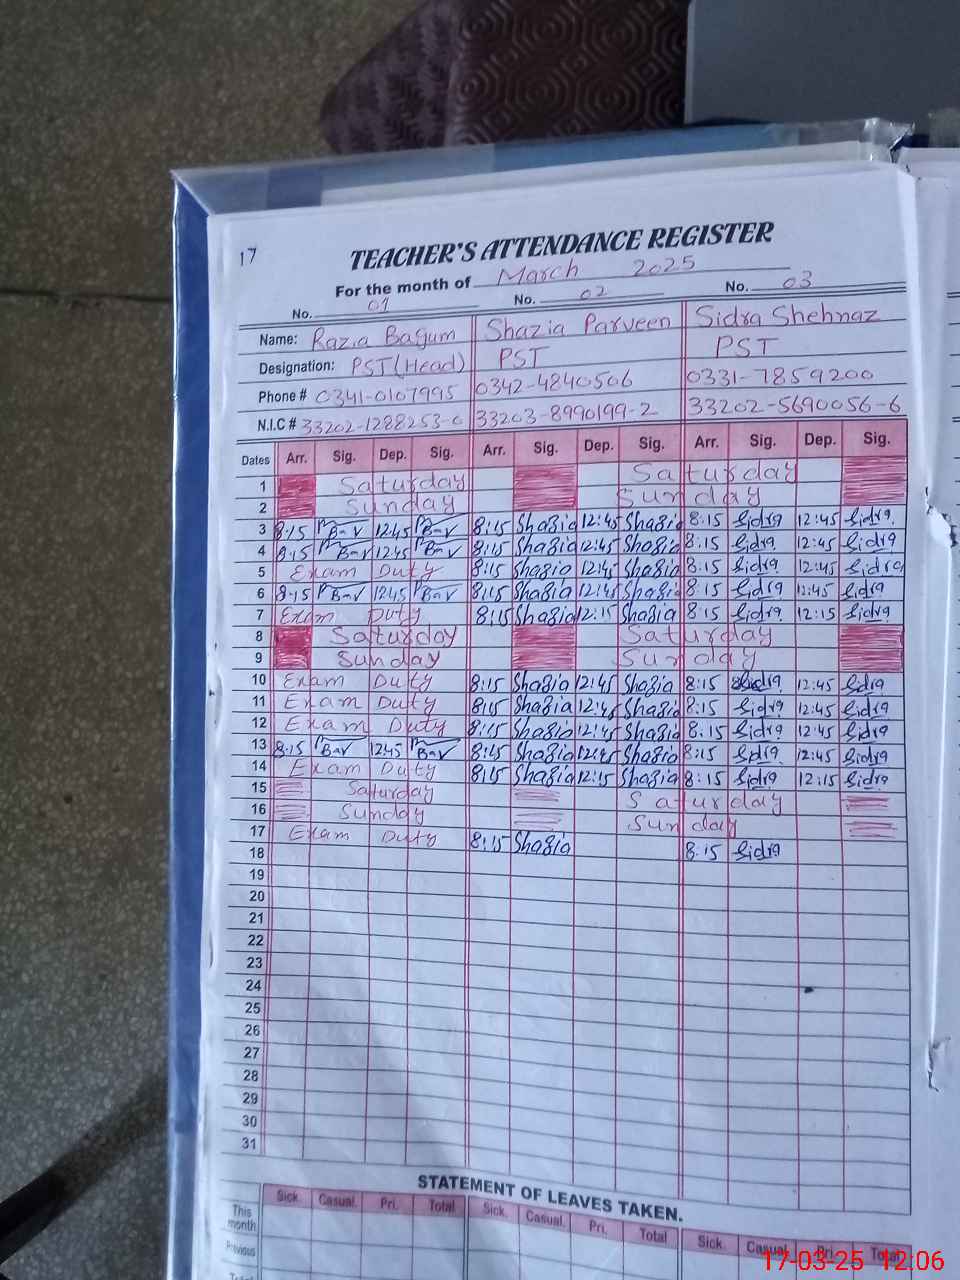 17
TEACHER'S ATTENDANCE REGISTER
For the month of March 2025
No. 01 No. 02 No. 03
Name: Razia Bagum Shazia Parveen Sidra Shehnaz
Designation: PST(Head) PST PST
Phone # 0341-0107995 0342-4840506 0331-7859200
N.I.C # 33202-1288253-0 33203-8990199-2 33202-5690056-6
Dates Arr. Sig. Dep. Sig. Arr. Sig. Dep. Sig. Arr. Sig. Dep. Sig.
1 Saturday Saturday
2 Sunday Sunday
3 8:15 1245 8:15 Shazia 12:45 Shazia 8:15 Sidra 12:45 Sidra
4 8:15 1245 8:15 Shazia 12:45 Shazia 8:15 Sidra 12:45 Sidra
5 Exam Duty 8:15 Shazia 12:45 Shazia 8:15 Sidra 12:45 Sidra
6 8:15 1245 8:15 Shazia 12:45 Shazia 8:15 Sidra 12:45 Sidra
7 Exam Duty 8:15 Shazia 12:15 Shazia 8:15 Sidra 12:15 Sidra
8 Saturday Saturday
9 Sunday Sunday
10 Exam Duty 8:15 Shazia 12:45 Shazia 8:15 Sidra 12:45 Sidra
11 Exam Duty 8:15 Shazia 12:45 Shazia 8:15 Sidra 12:45 Sidra
12 Exam Duty 8:15 Shazia 12:45 Shazia 8:15 Sidra 12:45 Sidra
13 8:15 1245 8:15 Shazia 12:45 Shazia 8:15 Sidra 12:45 Sidra
14 Exam Duty 8:15 Shazia 12:15 Shazia 8:15 Sidra 12:15 Sidra
15 Saturday Saturday
16 Sunday Sunday
17 Exam Duty 8:15 Shazia 8:15 Sidra
18
19
20
21
22
23
24
25
26
27
28
29
30
31
STATEMENT OF LEAVES TAKEN.
Sick. Casual. Pri. Total Sick. Casual. Pri. Total Sick. Casual. Pri. Total
This month
Previous
Total
17-03-25 12:06